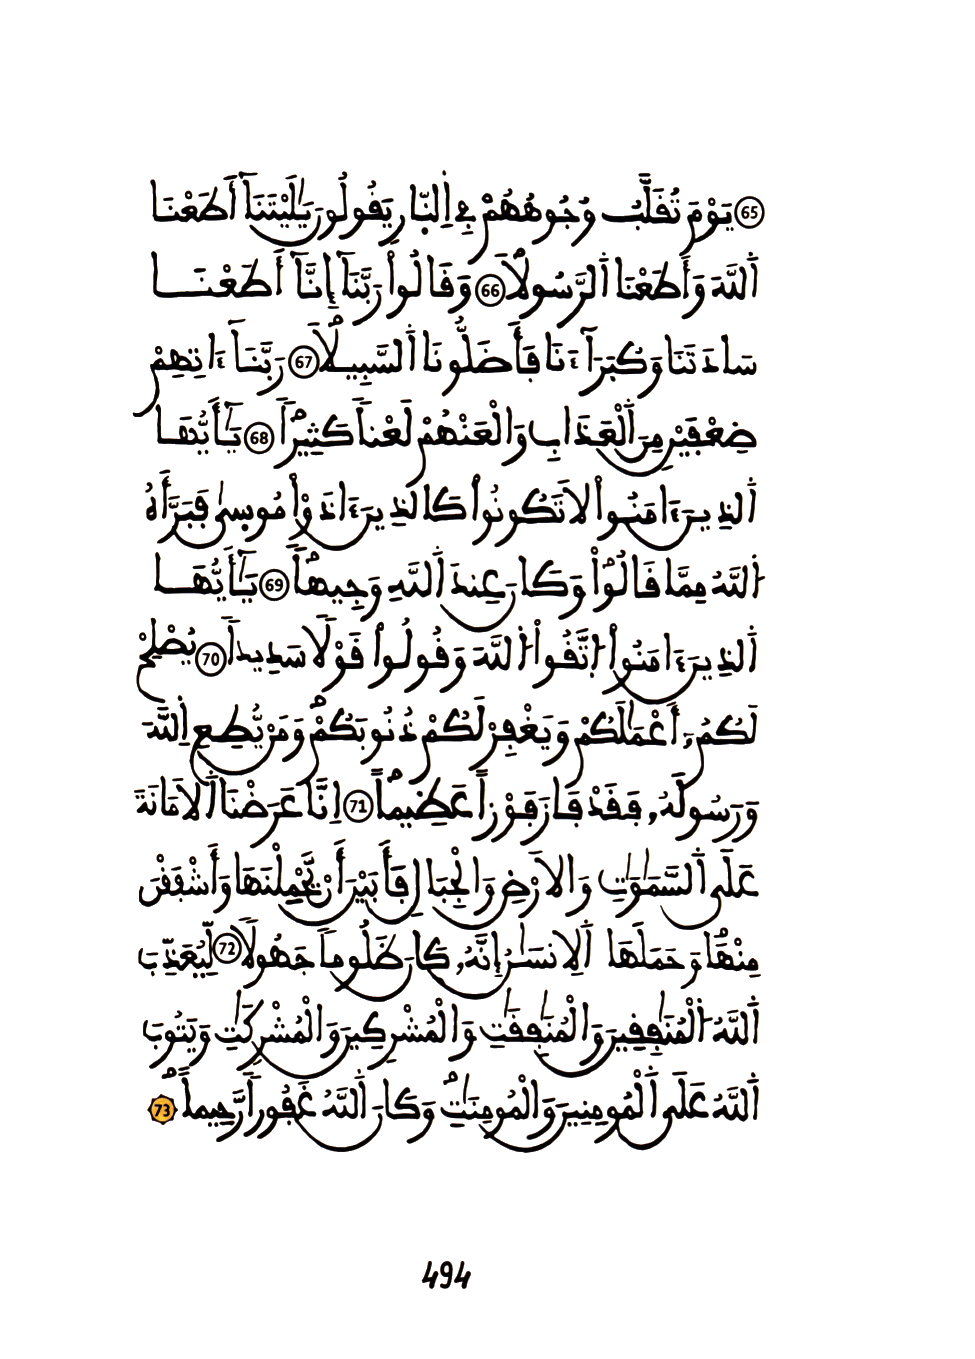 65 يَوْمَ تُقَلَّبُ وُجُوهُهُمْ فِے اِ۬لنّ۪ارِ يَقُولُونَ يَٰلَيْتَنَآ أَطَعْنَا
اَ۬للَّهَ وَأَطَعْنَا اَ۬لرَّسُولَاۖ 66 وَقَالُواْ رَبَّنَآ إِنَّآ أَطَعْنَا
سَادَتَنَا وَكُبَرَآءَنَا فَأَضَلُّونَا اَ۬لسَّبِيلَاۖ 67 رَبَّنَآ ءَاتِهِمْ
ضِعْفَيْنِ مِنَ اَ۬لْعَذَابِ وَالْعَنْهُمْ لَعْناٗ كَثِيراٗۖ 68 يَٰٓأَيُّهَا
اَ۬لذِينَ ءَامَنُواْ لَا تَكُونُواْ كَالذِينَ ءَاذَوْاْ مُوس۪ىٰ فَبَرَّأَهُ
اُ۬للَّهُ مِمَّا قَالُواْۖ وَكَانَ عِندَ اَ۬للَّهِ وَجِيهاٗۖ 69 يَٰٓأَيُّهَا
اَ۬لذِينَ ءَامَنُواْ اُ۪تَّقُواْ اُ۬للَّهَ وَقُولُواْ قَوْلاٗ سَدِيداٗ 70 يُصْلِحْ
لَكُمُۥٓ أَعْمَٰلَكُمْ وَيَغْفِرْ لَكُمْ ذُنُوبَكُمْۖ وَمَنْ يُّطِعِ اِ۬للَّهَ
وَرَسُولَهُۥ فَقَدْ فَازَ فَوْزاً عَظِيماًۖ 71 اِنَّا عَرَضْنَا اَ۬لَامَانَةَ
عَلَى اَ۬لسَّمَٰوَٰتِ وَالَارْضِ وَالْجِبَالِ فَأَبَيْنَ أَنْ يَّحْمِلْنَهَا وَأَشْفَقْنَ
مِنْهَاۖ وَحَمَلَهَا اَ۬لِانسَٰنُ إِنَّهُۥ كَانَ ظَلُوماٗ جَهُولاٗۖ 72 لِّيُعَذِّبَ
اَ۬للَّهُ اُ۬لْمُنَٰفِقِينَ وَالْمُنَٰفِقَٰتِ وَالْمُشْرِكِينَ وَالْمُشْرِكَٰتِ وَيَتُوبَ
اَ۬للَّهُ عَلَى اَ۬لْمُومِنِينَ وَالْمُومِنَٰتِۖ وَكَانَ اَ۬للَّهُ غَفُوراٗ رَّحِيماًۖ 73
494